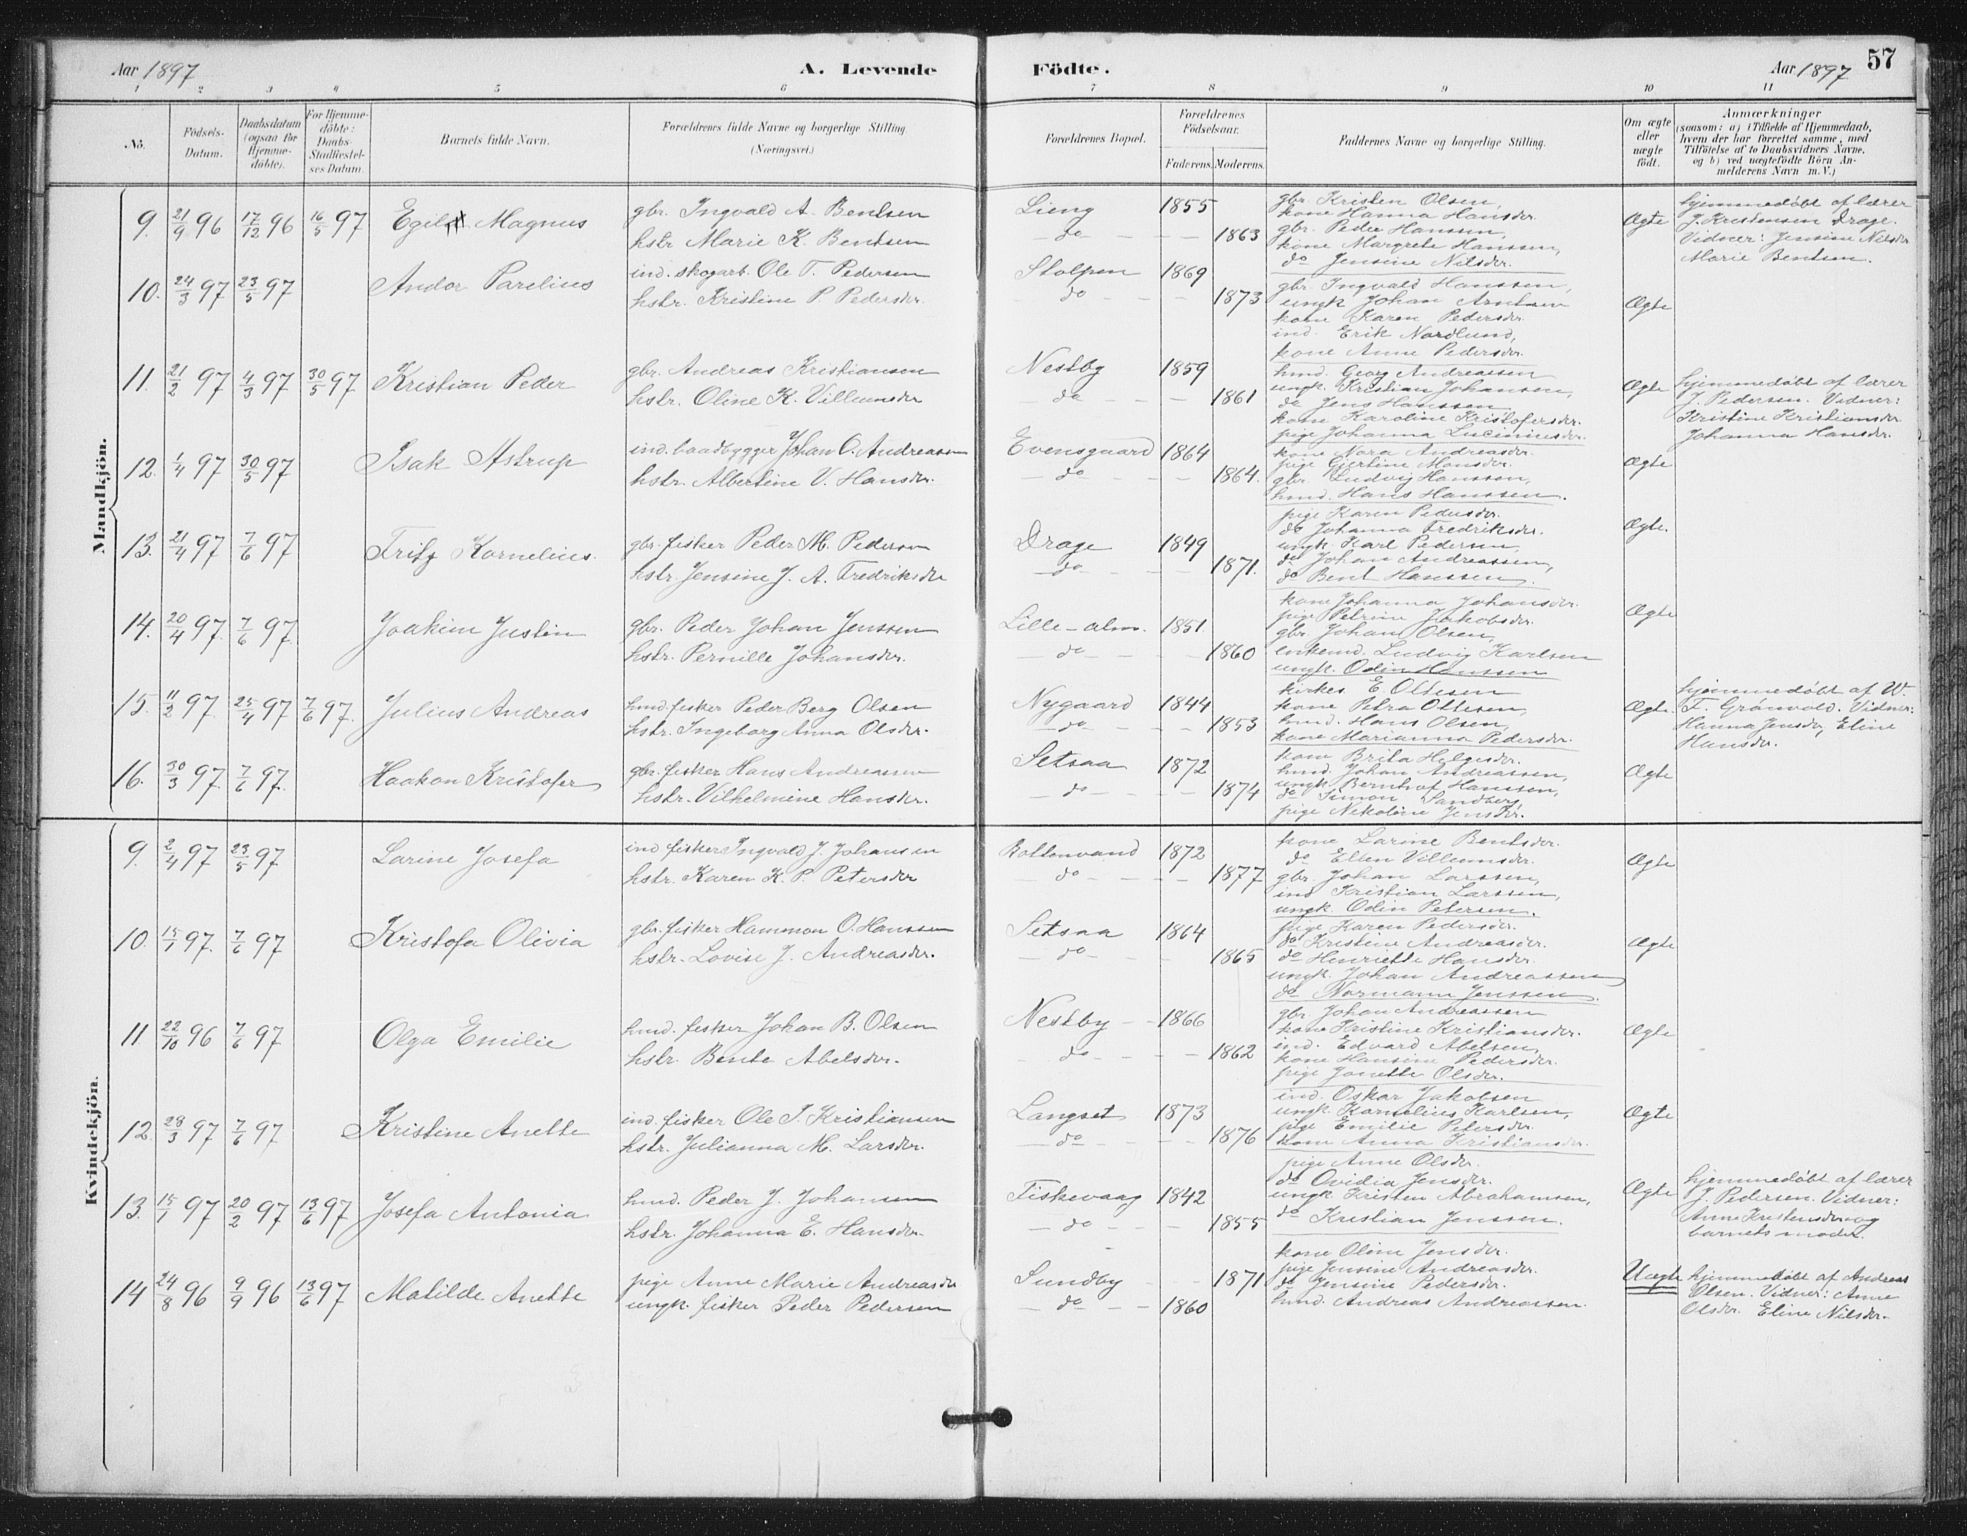 Aar 1897
A. Levende
Födte.
Aar 1897
57
1 2 3 4 5 6 7 8 9 10 11
No.
Födsels-Datum.
Daabsdatum (ogsaa for Hjemmedöbte).
For Hjemmedöbte: Daabs-Stadfæstelses Datum.
Barnets fulde Navn.
Forældrenes fulde Navne og borgerlige Stilling (Næringsvei.)
Forældrenes Bopæl.
Forældrenes Födselsaar.
Faderens. Moderens.
Faddernes Navne og borgerlige Stilling.
Om ægte eller uægte födt.
Anmærkninger
(saasom: a) i Tilfælde af Hjemmedaab,
hvem der har forrettet samme, med
Tilföielse af to Daabsvidners Navne,
og b) ved uægtefödte Börn An-
melderens Navn m. V.)
Mandkjön.
9. 21/9 96 17/12 96 16/5 97 Egil Magnus
gbr. Ingvald A. Bentsen
hstr Marie K. Bentsen
Lieng 1855
do 1863
gbr. Kristen Olsen,
kone Hanna Hansdr.
gbr. Peder Hanssen,
kone Margrete Hanssen,
do Jensine Nilsdr.
Ægte
hjemmedøbt af lærer
J. Kristensen Drage.
Vidner: Jensine Nilsdr
Marie Bentsen.
10. 24/3 97 23/5 97 Andor Parelius
ind. skogarb. Ole T. Pedersen
hstr. Kristine P. Pedersdr.
Stolpen 1869
do 1873
gbr. Ingvald Hanssen,
ungk Johan Arntsen
kone Karen Pedersdr.
ind. Erik Nordlund,
kone Anne Pedersdr.
Ægte
11. 21/2 97 4/3 97 30/5 97 Kristian Peder
gbr. Andreas Kristiansen
hstr. Oline K. Villumsdr
Nestby 1859
do 1861
hmd. Georg Andreassen
ungk. Kristian Johansen,
do Jens Hanssen
kone Karoline Kristofersdr.
pige Johanna
Ægte
hjemmedøbt af lærer
J. Pedersen. Vidner:
Kristine Kristiansdr
Johanna Hansdr.
12. 1/4 97 30/5 97 Isak Astrup
ind. baadbygger Johan O. Andreassen
hstr. Albertine V. Hansdr.
Evensgaard 1864
do 1864.
kone Nora Andreasdr.
pige Gjertine Monsdr.
gbr. Ludvig Hanssen,
hmd. Hans Hanssen.
Ægte
13. 21/4 97 7/6 97 Fritz Kornelius.
gbr. fisker Peder M. Pedersen
hstr Jensine J. A. Fredriksdr
Drage 1849
do 1871.
pige Karen Pedersdr.
do Johanna Fredriksdr.
ungk Karl Pedersen,
do Johan Andreassen,
do Bent Hanssen.
Ægte.
14. 20/4 97 7/6 97. Joakim Justin
gbr. Peder Johan Jenssen
hstr. Pernille Johansdr.
Lille-alm. 1851.
do 1860
kone Johanna Johansdr.
pige Petrine Jakobsdr.
gbr. Johan Olsen,
enkemd. Ludvig Karlsen
ungk. Odin Hanssen
Ægte
15. 11/2 97. 25/4 97 7/6 97. Julius Andreas
hmd. fisker Peder Berg Olsen
hstr. Ingeborg Anna Olsdr.
Nygaard 1844
do 1853
kirkes. E. Ottesen
kone Petra Ottesen,
hmd. Hans Olsen,
kone Marianna Pedersdr.
Ægte.
hjemmedøbt af W.
F. Grønvold. Vidner:
Hanna Jensdr, Eline
Hansdr.
16. 30/3 97. 7/6 97. Haakon Kristofer
gbr. fisker Hans Andreassen
hstr. Vilhelmine Hansdr.
Setsaa 1872
do 1874
kone Brita Helgesdr.
hmd. Johan Andreassen,
ungk. Bernhof Hanssen,
do Simon Sandberg,
pige Nikoline Jensdr.
Ægte
Kvindekjön.
9. 2/4 97 23/5 97 Larine Josefa
ind fisker Ingvald J. Johansen
hstr. Karen K. P. Petersdr
Bottenvand 1872
do 1877
kone Larine Bentsdr.
do Ellen Villumsdr.
gbr. Johan Larssen,
ind Kristian Larssen,
ungk. Odin Petersen.
Ægte
10. 15/1 97. 7/6 97 Kristofa Olivia
gbr. fisker Hammon O. Hanssen
hstr. Lovise J. Andreasdr.
Setsaa 1864
do 1865
pige Karen Pedersdr.
do Kristine Andreasdr.
do Henriette Hansdr.
ungk. Johan Andreassen
do Normann Jenssen.
Ægte
11 22/10 96 7/6 97 Olga Emilie
hmd. fisker Johan B. Olsen
hstr. Bente Abelsdr.
Nestby 1866
do 1862
gbr Johan Andreassen
kone Kristine Kristiansdr.
ind. Edvard Abelsen,
kone Hansine Pedersdr.
pige Jonette Olsdr.
Ægte
12. 28/3 97 7/6 97 Kristine Anette
ind. fisker Ole J. Kristiansen
hstr. Julianna M. Larsdr.
Langset 1873
do 1876
ind. Oskar Jakobsen
ungk. Kornelius Karlsen,
pige Emilie Petersdr.
kone Anna Kristiansdr.
Ægte
13. 15/1 97 20/2 97 13/6 97 Josefa Antonia
hmd. Peder J. Johansen
hstr. Johanna E. Hansdr.
Fiskevaag 1842
do 1855
pige Anne Olsdr.
do Ovidia Jensdr.
ungk Kristen Abrahamsen,
do Kristian Jenssen.
Ægte
hjemmedøbt af lærer
J. Pedersen. Vidner:
Anne Kristensdr og
barnets moder.
14 24/8 96 9/9 96 13/6 97 Matilde Anette
pige Anne Marie Andreasdr
ungk. fisker Peder Pedersen
Sundby 1871
do 1860
kone Oline Jensdr.
pige Jensine Andreasdr.
do Jensine Pedersdr.
hmd. Andreas Andreassen.
Uægte
hjemmedøbt af Andreas
Olsen. Vidner: Anne
Olsdr. Eline Nilsdr.